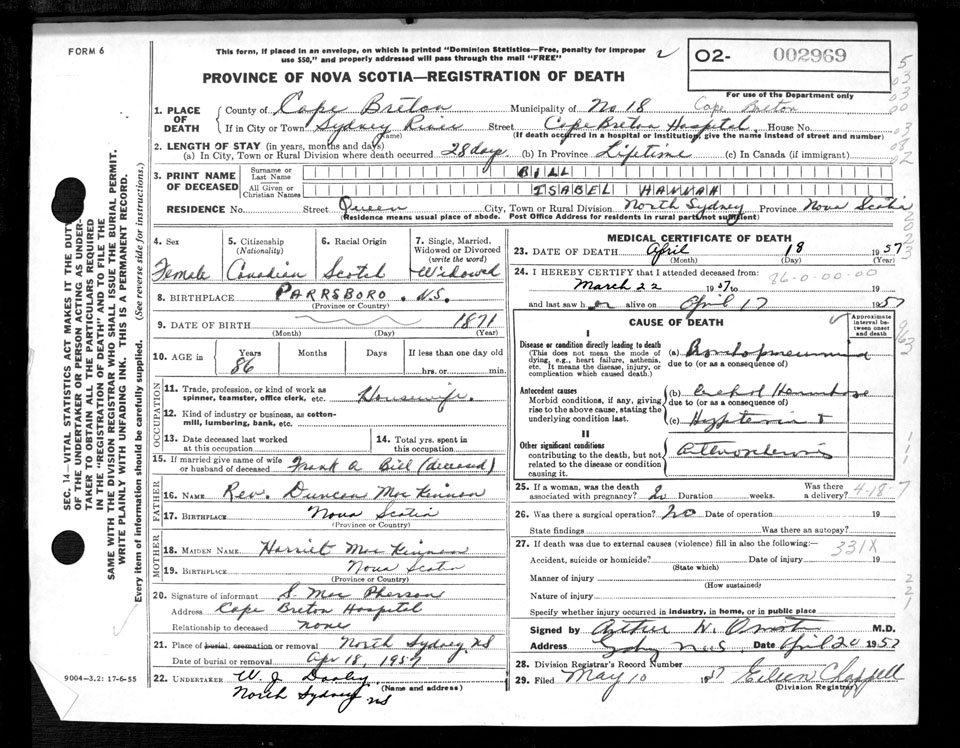 FORM 6
This form, if placed in an envelope, on which is printed "Dominion Statistics—Free, penalty for improper
use $50," and properly addressed will pass through the mail "FREE"
02- 002969
For use of the Department only
PROVINCE OF NOVA SCOTIA—REGISTRATION OF DEATH
1. PLACE OF DEATH
County of Cape Breton Municipality of No 18 Cape Breton
If in City or Town Sydney River Street Cape Breton Hospital House No.
(Name) (If death occurred in a hospital or institution, give the name instead of street and number)
2. LENGTH OF STAY (in years, months and days)
(a) In City, Town or Rural Division where death occurred 28 days (b) In Province Lifetime (c) In Canada (if immigrant)
3. PRINT NAME OF DECEASED
Surname or Last Name BILL
All Given or Christian Names ISABEL HANNAH
RESIDENCE No. Street Queen City, Town or Rural Division North Sydney Province Nova Scotia
(Residence means usual place of abode. Post Office Address for residents in rural parts not sufficient)
4. Sex Female
5. Citizenship (Nationality) Canadian
6. Racial Origin Scotch
7. Single, Married, Widowed or Divorced (write the word) Widowed
8. BIRTHPLACE PARRSBORO. N.S.
(Province or Country)
9. DATE OF BIRTH 1871
(Month) (Day) (Year)
10. AGE in Years 86 Months Days If less than one day old
hrs. or min.
OCCUPATION
11. Trade, profession, or kind of work as spinner, teamster, office clerk, etc. Housewife
12. Kind of industry or business, as cotton-mill, lumbering, bank, etc.
13. Date deceased last worked at this occupation
14. Total yrs. spent in this occupation
15. If married give name of wife or husband of deceased Frank A Bill (deceased)
FATHER
16. NAME Rev. Duncan MacKinnon
17. BIRTHPLACE Nova Scotia
(Province or Country)
MOTHER
18. MAIDEN NAME Harriet MacKinnon
19. BIRTHPLACE Nova Scotia
(Province or Country)
20. Signature of informant S. MacPherson
Address Cape Breton Hospital
Relationship to deceased none
21. Place of burial, cremation or removal North Sydney, NS
Date of burial or removal Apr 18, 1957
22. UNDERTAKER W. J.
(Name and address)
North Sydney NS
9004-3.2: 17-6-55
MEDICAL CERTIFICATE OF DEATH
23. DATE OF DEATH April 18 1957
(Month) (Day) (Year)
24. I HEREBY CERTIFY that I attended deceased from: 86-0-00-00
March 22 1957 to
and last saw her alive on April 17 1957
CAUSE OF DEATH
Approximate interval between onset and death
I
Disease or condition directly leading to death
(This does not mean the mode of dying, e.g., heart failure, asthenia, etc. It means the disease, injury, or complication which caused death.)
(a) Bronchopneumonia
due to (or as a consequence of)
Antecedent causes
Morbid conditions, if any, giving rise to the above cause, stating the underlying condition last.
(b) Cerebral Hemorrhage
due to (or as a consequence of)
(c) Hypertension &
II
Other significant conditions
contributing to the death, but not related to the disease or condition causing it.
25. If a woman, was the death associated with pregnancy? No Duration weeks. Was there a delivery? 4-18-7
26. Was there a surgical operation? no Date of operation 19
State findings Was there an autopsy?
27. If death was due to external causes (violence) fill in also the following:— 331X
Accident, suicide or homicide? Date of injury 19
(State which)
Manner of injury
(How sustained)
Nature of injury
Specify whether injury occurred in industry, in home, or in public place
Signed by Arthur W. M.D.
Address Sydney N.S. Date April 20 1957
28. Division Registrar's Record Number
29. Filed May 10 1957 Eileen Chappell
(Division Registrar)
SEC. 14—VITAL STATISTICS ACT MAKES IT THE DUTY
OF THE UNDERTAKER OR PERSON ACTING AS UNDER-
TAKER TO OBTAIN ALL THE PARTICULARS REQUIRED
IN THE "REGISTRATION OF DEATH" AND TO FILE THE
SAME WITH THE DIVISION REGISTRAR WHO SHALL ISSUE THE BURIAL PERMIT.
WRITE PLAINLY WITH UNFADING INK. THIS IS A PERMANENT RECORD.
Every item of information should be carefully supplied. (See reverse side for instructions.)